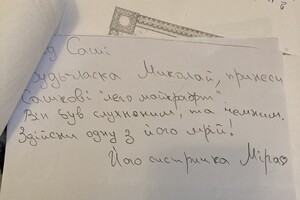 д Саші
удьласка Миколай, принеси
Сашкові "лего майкрафт"
Він був слухняним, та чемним.
Здійсни одну з його мрій!
Його сестричка Міра♡